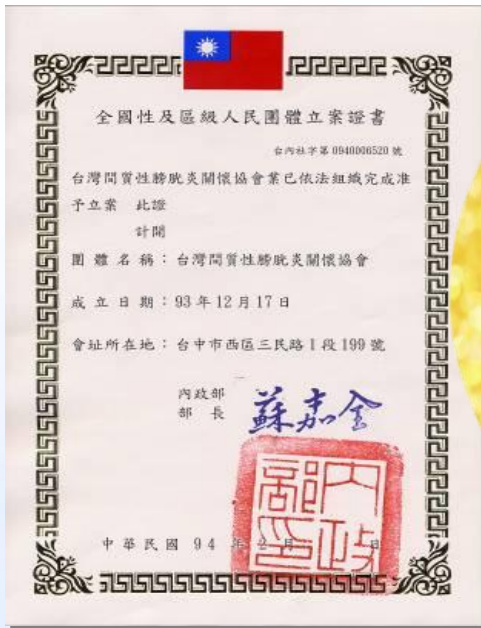 全國性及區級人民團體立案證書
台內社字第0940006520號
台灣間質性膀胱炎關懷協會業已依法組織完成准
予立案 此證
計開
團體名稱：台灣間質性膀胱炎關懷協會
成立日期：93年12月17日
會址所在地：台中市西區三民路1段199號
內政部
部長 蘇嘉全
內政部印
中華民國 94 年2月 日